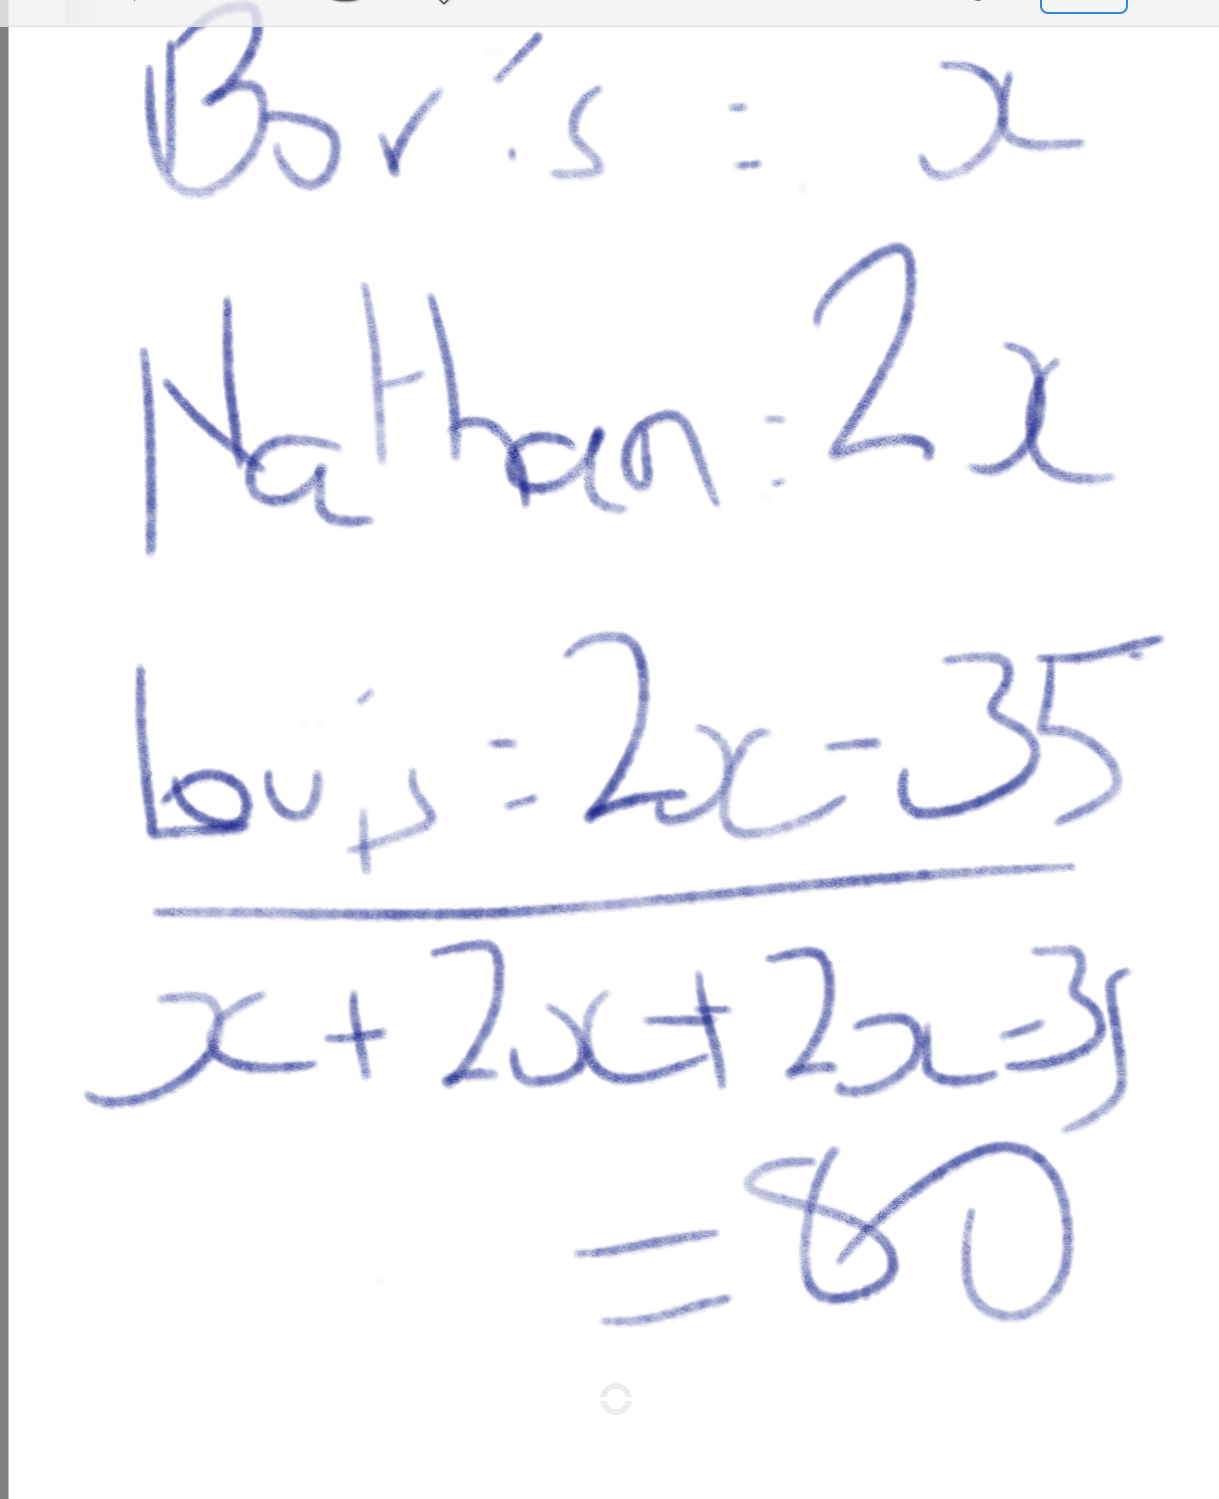 Boris = x
Nathan = 2x
Louis = 2x - 35
x + 2x + 2x - 35
= 80